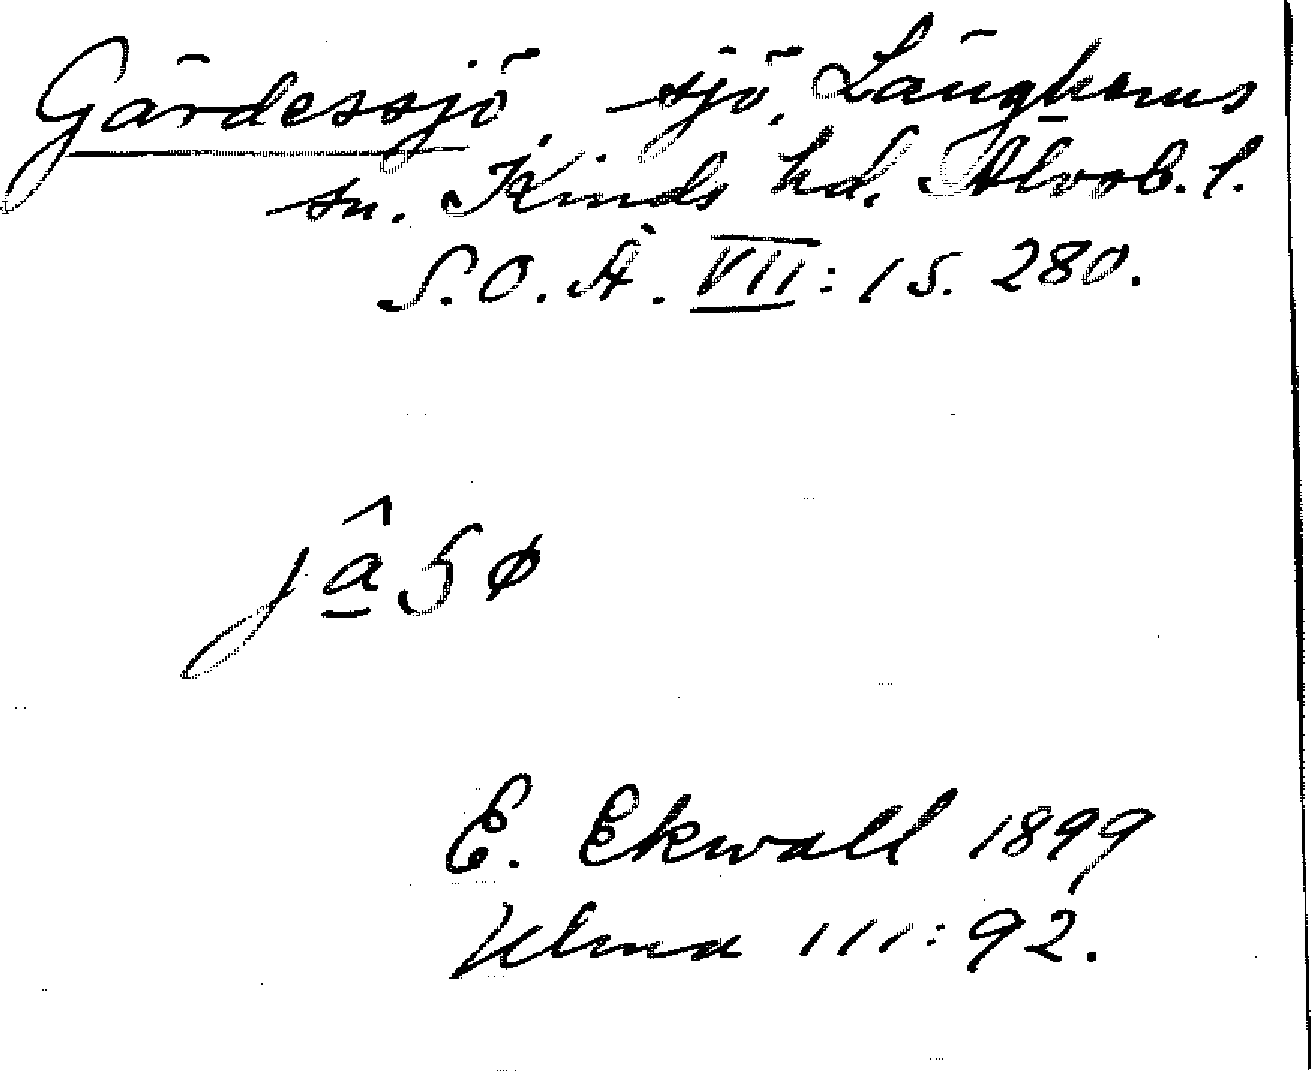 Gärdessjö, sjö, Länghems
sn. Kinds hd. Älvsb. l.
S.O.Ä. VII: 1 S. 280.
E. Ekwall 1899
Ulma 111:92.